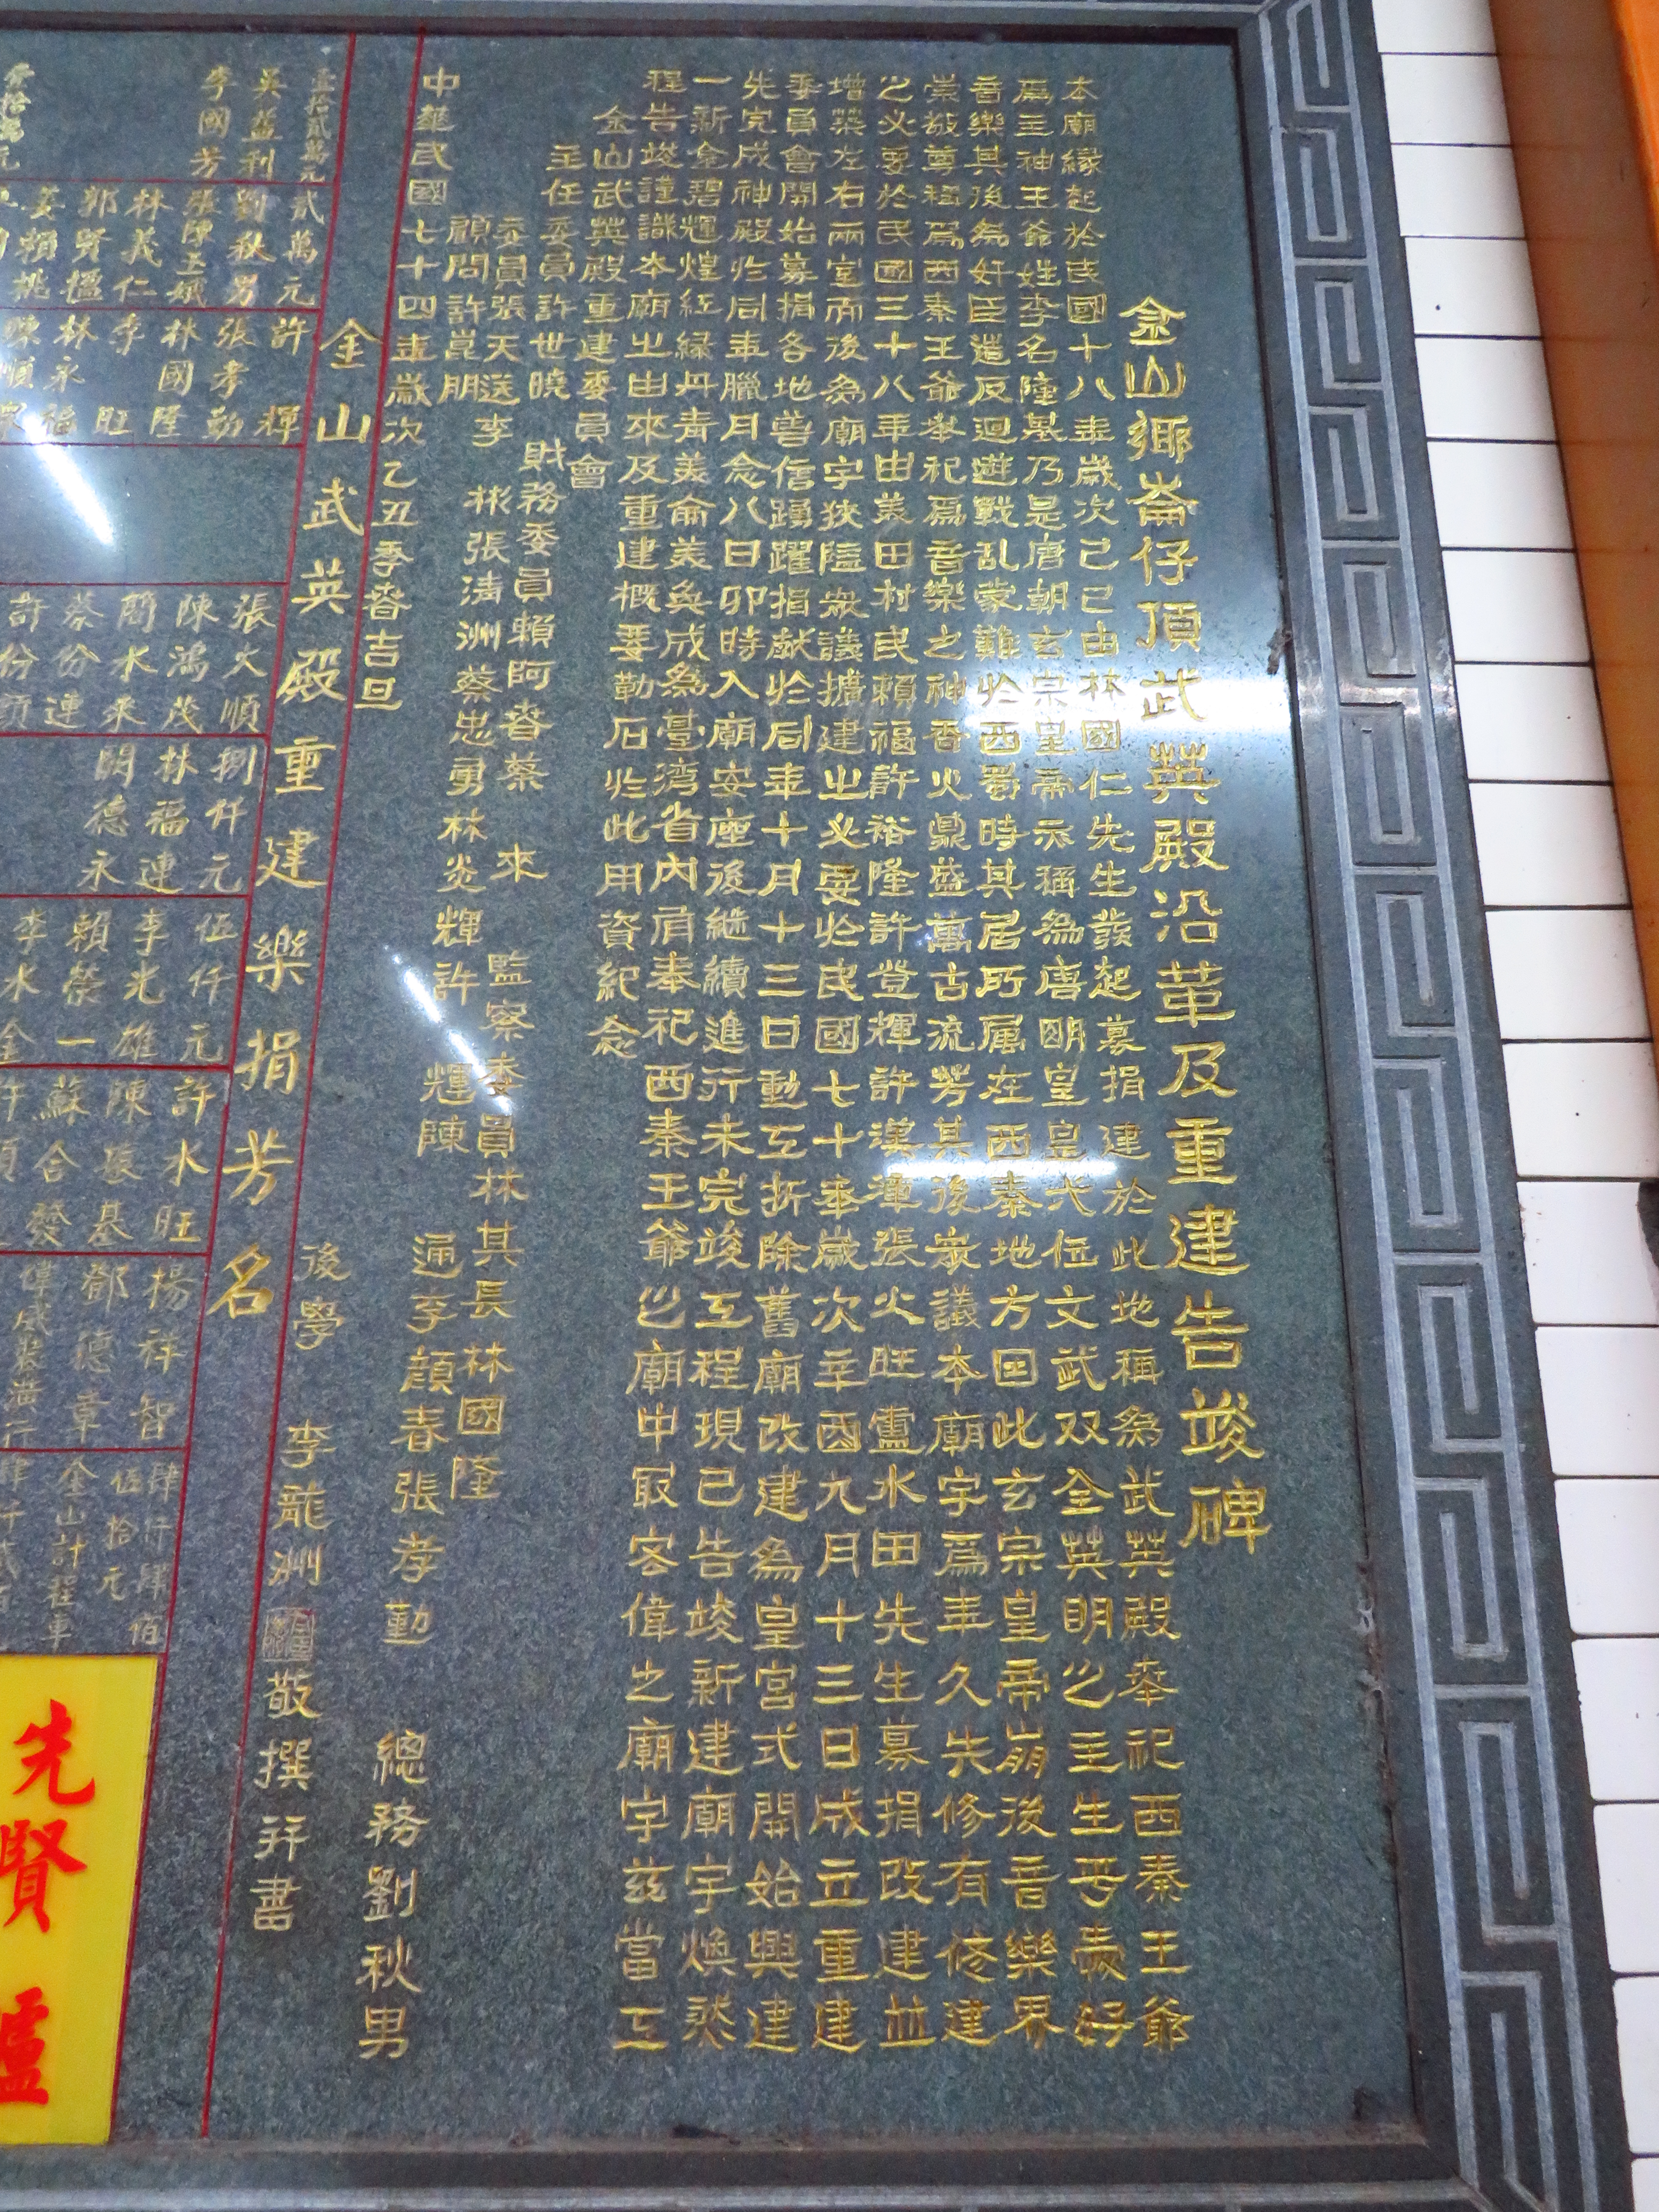 金山鄉崙仔頂武英殿沿革及重建告竣碑
本廟緣起於民國十八年歲次己巳由林國仁先生發起募捐建於此地稱為武英殿奉祀西秦王爺
為主神王爺姓李名隆基乃是唐朝玄宗皇帝亦稱為唐明皇皇代位文武双全英明之主生乎喪好
音樂其後為奸臣造反迴遊戰乱蒙難於西蜀時其居所属在西秦地方因此玄宗皇帝崩後音樂界
崇敬尊稱為西秦王爺奉祀為音樂之神香火鼎盛萬古流芳其後眾議本廟宇為年久失修有修建
之必要於民國三十八年由美田村民賴福許裕隆許登輝許漢璋張火旺盧水田先生募捐改建並
增築左右兩室而後為廟宇狹隘眾議擴建之必要於民國七十年歲次辛酉九月十三日成立重建
委員會開始募捐各地善信踴躍捐献於同年十月十三日動工折除舊廟改建為皇宮式開始興建
先完成神殿於同年臘月念八日卯時入廟安座後継續進行未完竣工程現已告竣新建廟宇煥然
一新金碧輝煌紅緑丹青美侖美奐成為臺湾省內肩奉祀西秦王爺之廟中最宏偉之廟宇茲當工
程告竣謹識本廟之由來及重建概要勒石於此用資紀念
金山武英殿重建委員會
主任委員許世曉 財務委員賴阿春蔡 來 監察委員林其長林國隆
委員張天送李 彬張清洲蔡忠勇林炎輝許 輝陳 通李顏春張孝勤 總務劉秋男
顧問許崑朋
中華民國七十四年歲次乙丑季春吉旦 後學 李龍洲敬撰拜書
金山武英殿重建樂捐芳名
壹拾貳萬元 貳萬元 許 輝 張火順 捌仟元 伍仟元 許水旺 楊祥智 肆仟肆佰伍拾元
吳益利 劉秋男 張孝勤 陳鴻茂 林福連 李光雄 陳張基 鄧德章 金山計程車
李國芳 張陳玉娥 林國隆 簡水來 關德永 賴榮一 蘇合發
林義仁 李 旺 蔡份連 李水金
郭賢楹 林永福
姜賴桃
先賢爐